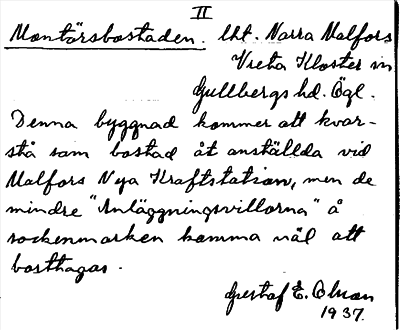 II
Montörsbostaden. Lht. Norra Malfors
Vreta Kloster sn
Gullbergs hd. Ögl.
Denna byggnad kommer att kvar-
stå som bostad åt anställda vid
Malfors Nya Kraftstation, men de
mindre "Anläggningsvillorna" å
sockenmarken komma väl att
borttagas.
Gustaf E. Olson
1937.